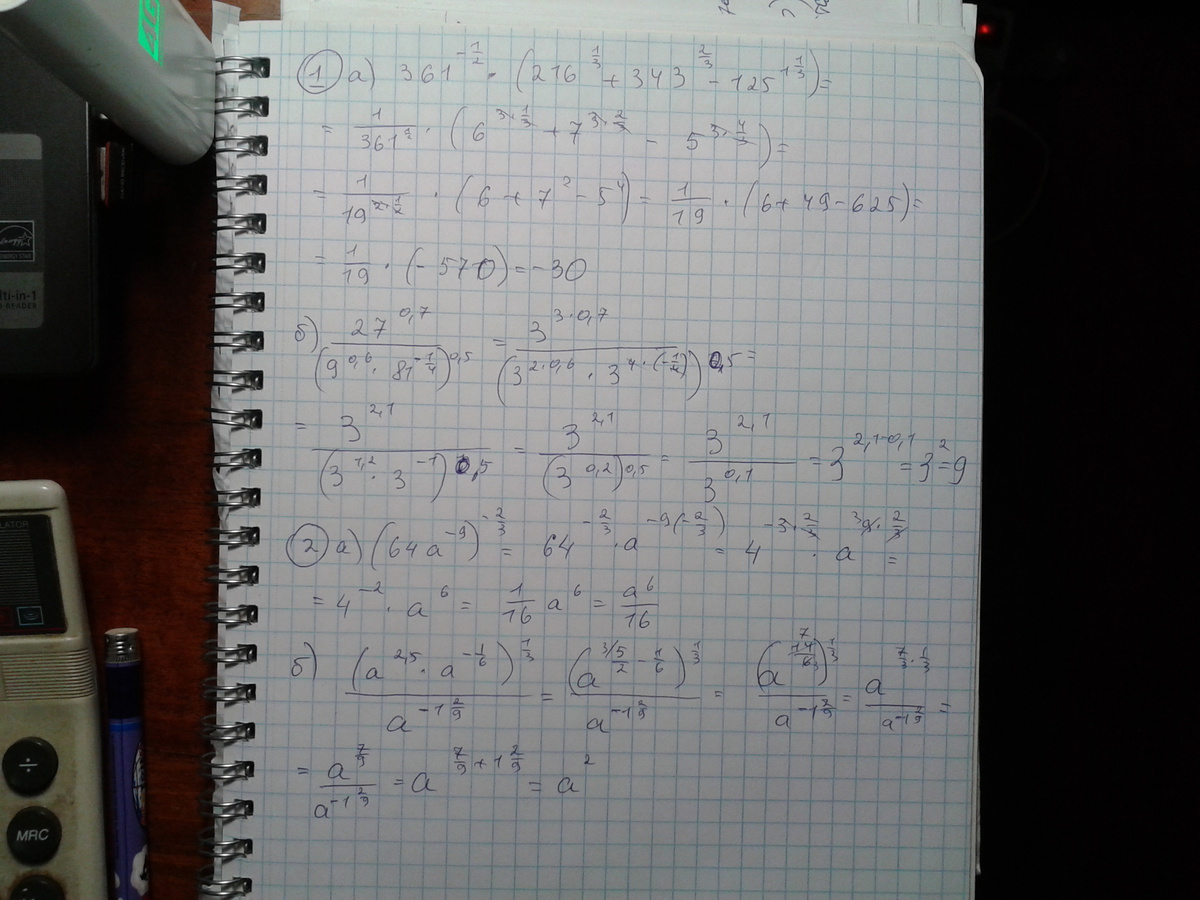 1 а) 361^{-1/2} · (216^{1/3} + 343^{2/3} - 125^{1 1/3}) =
= 1/361^{1/2} · (6^{3·1/3} + 7^{3·2/3} - 5^{3·4/3}) =
= 1/19^{2·1/2} · (6 + 7^2 - 5^4) = 1/19 · (6 + 49 - 625) =
= 1/19 · (-570) = -30
б) 27^{0,7}/(9^{0,6} · 81^{-1/4})^{0,5} = 3^{3·0,7}/(3^{2·0,6} · 3^{4·(-1/4)})0,5 =
= 3^{2,1}/(3^{1,2} · 3^{-1})0,5 = 3^{2,1}/(3^{0,2})^{0,5} = 3^{2,1}/3^{0,1} = 3^{2,1-0,1} = 3^2 = 9
2 а) (64a^{-9})^{-2/3} = 64^{-2/3} · a^{-9(-2/3)} = 4^{-3·2/3} · a^{9·2/3} =
= 4^{-2} · a^6 = 1/16 a^6 = a^6/16
б) (a^{2,5} · a^{-1/6})^{1/3}/a^{-1 2/9} = (a^{3/5/2 - 1/6})^{1/3}/a^{-1 2/9} = (a^{14/6})^{1/3}/a^{-1 2/9} = a^{7/3·1/3}/a^{-1 2/9} =
= a^{7/9}/a^{-1 2/9} = a^{7/9 + 1 2/9} = a^2
MRC
÷